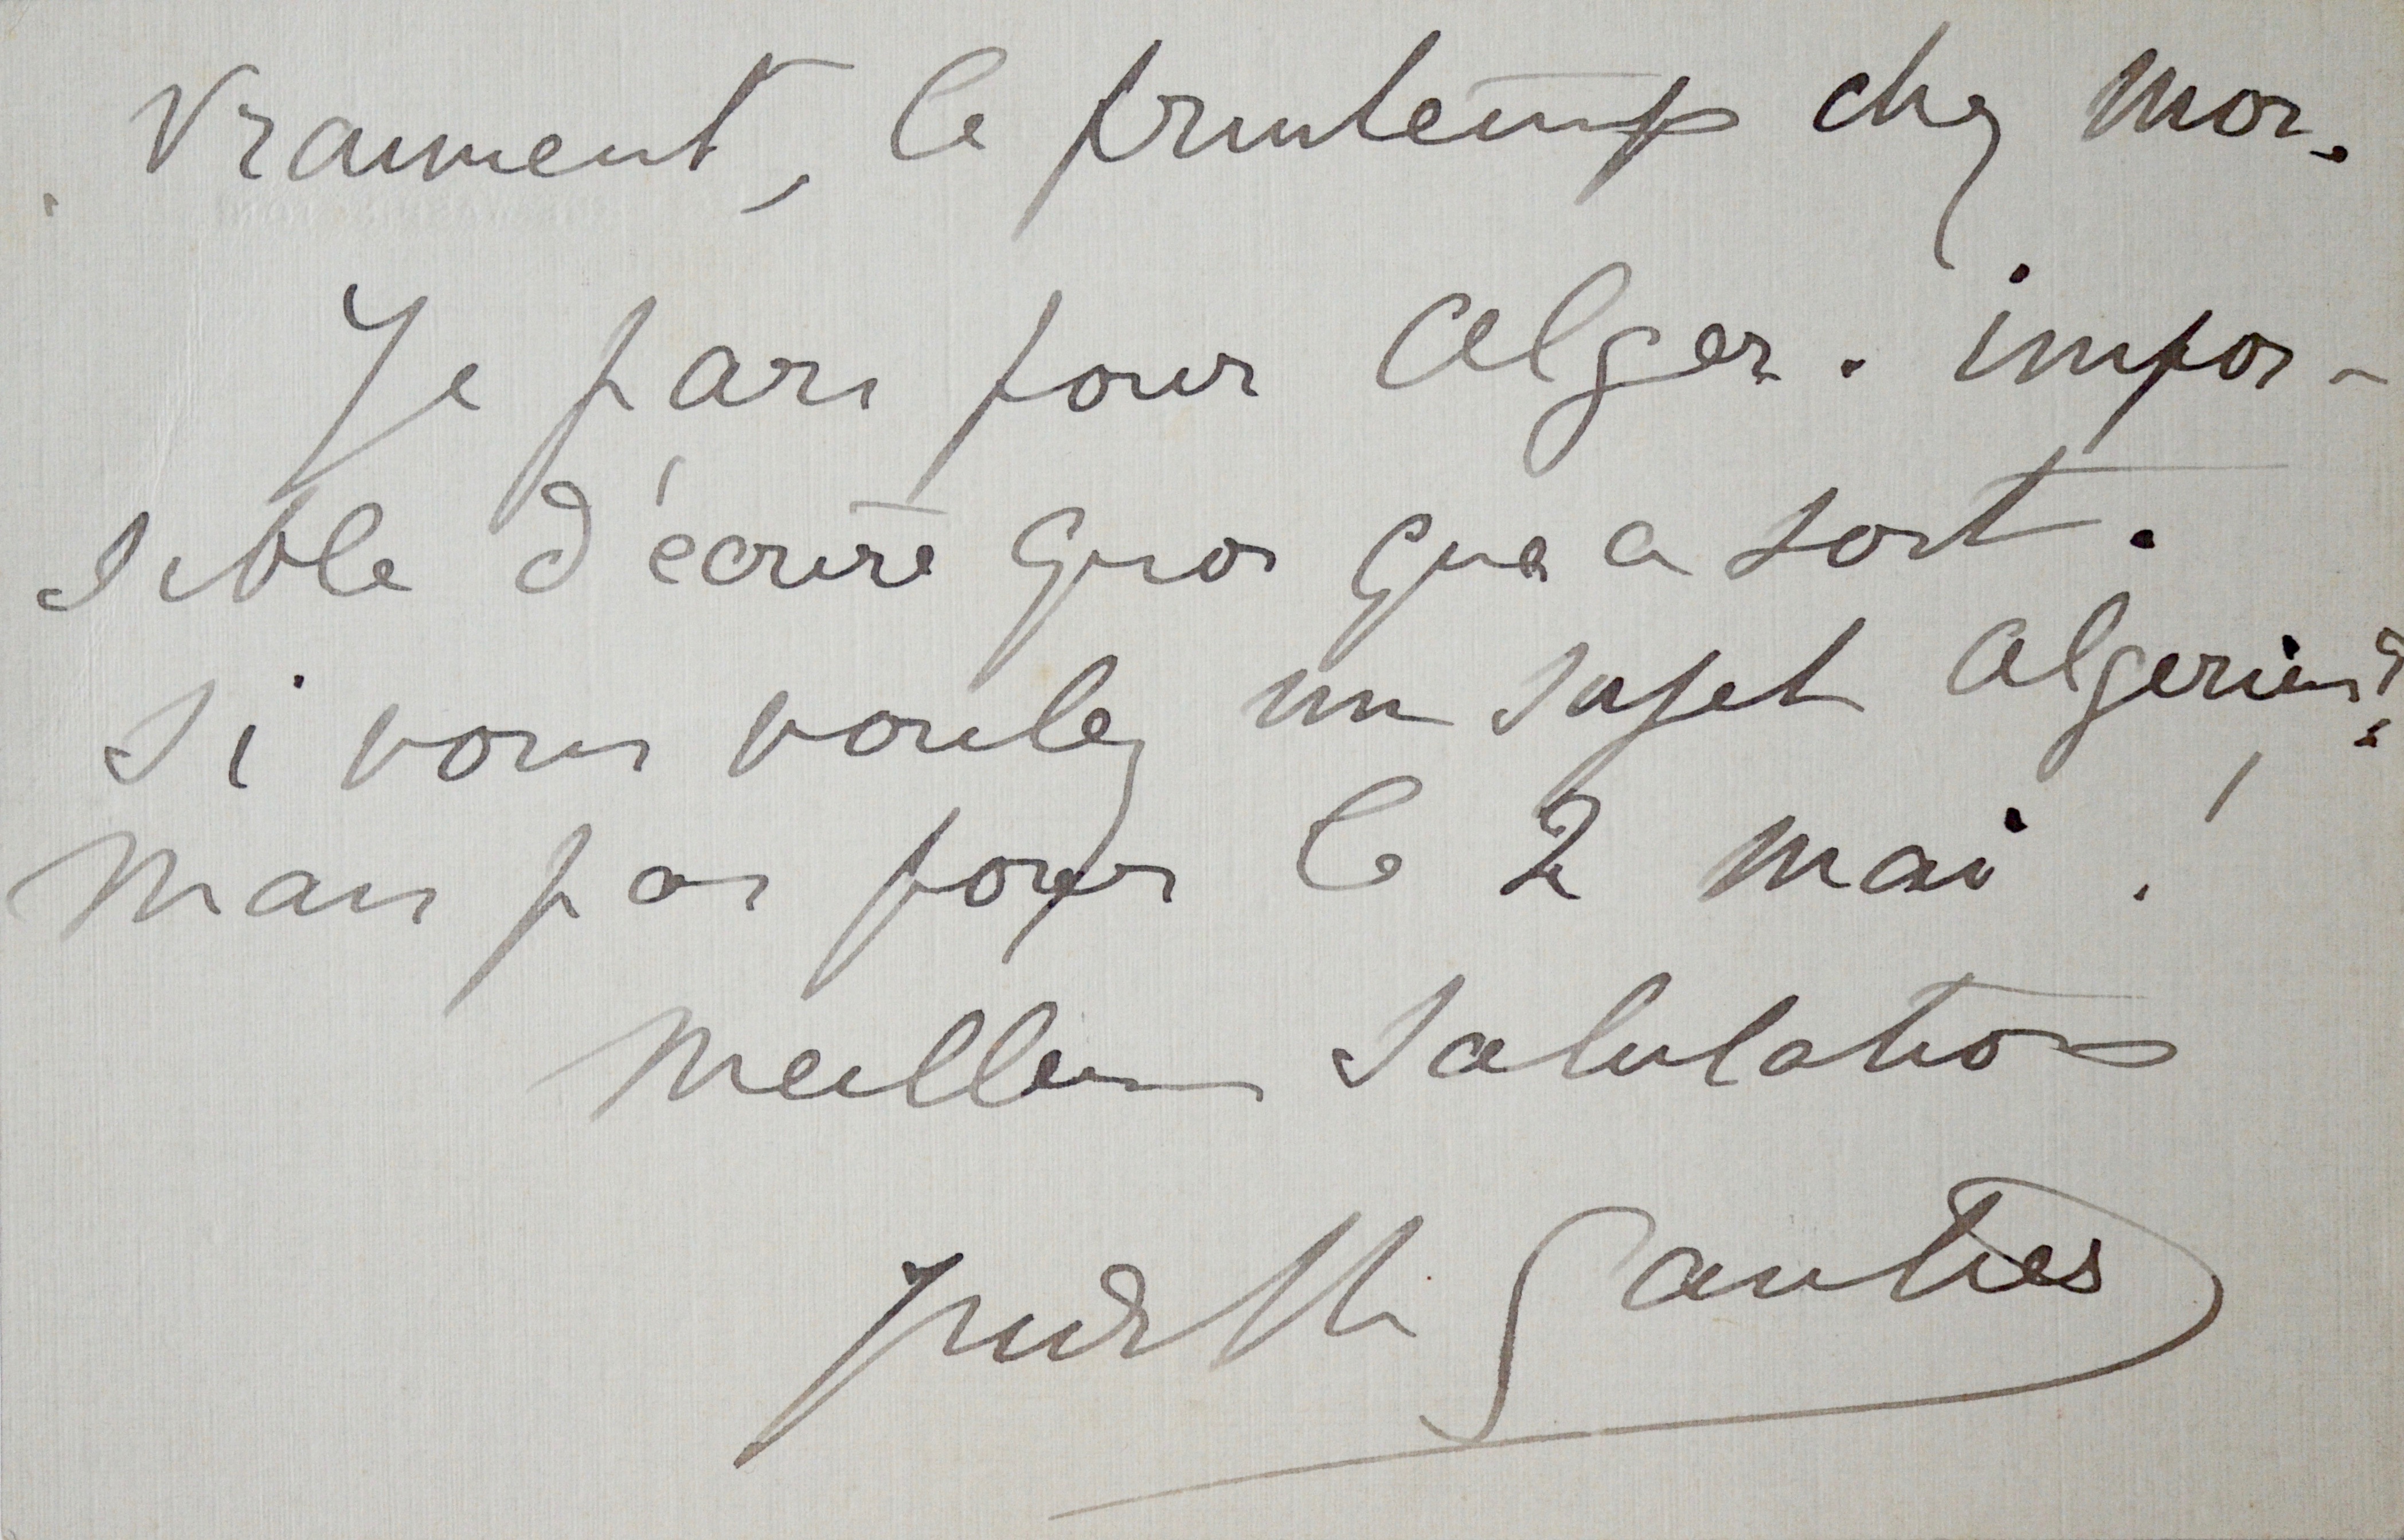 vraiment, le printemps chez moi.
Je pars pour Alger. impos-
sible d'écrire quoi que ce soit.
si vous voulez un sujet algerien?
mais pas pour le 2 mai !
meilleures salutations
Judith Gautier